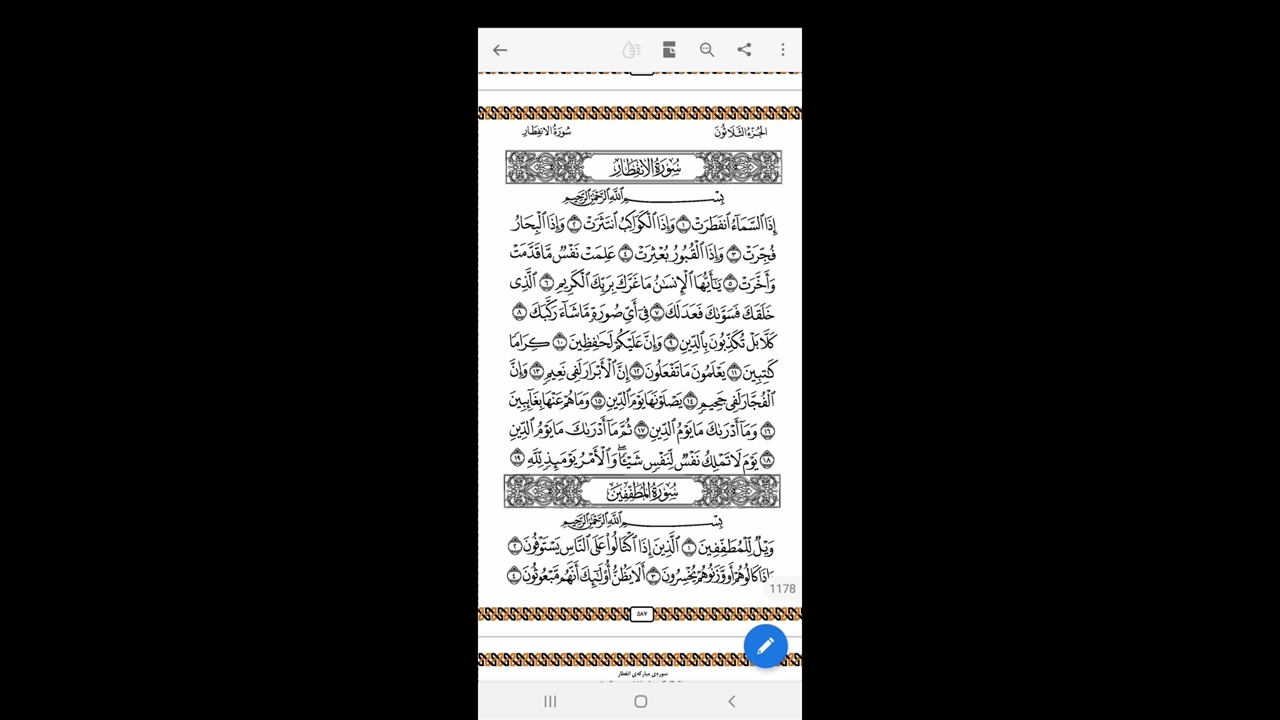 الجُزءُ الثَّلَاثُونَ
سُورَةُ الانفِطَار
سُورَةُ الانفِطَارِ
بِسْمِ اللَّهِ الرَّحْمَٰنِ الرَّحِيمِ
إِذَا ٱلسَّمَآءُ ٱنفَطَرَتْ ١ وَإِذَا ٱلْكَوَاكِبُ ٱنتَثَرَتْ ٢ وَإِذَا ٱلْبِحَارُ
فُجِّرَتْ ٣ وَإِذَا ٱلْقُبُورُ بُعْثِرَتْ ٤ عَلِمَتْ نَفْسٌ مَّا قَدَّمَتْ
وَأَخَّرَتْ ٥ يَٰٓأَيُّهَا ٱلْإِنسَٰنُ مَا غَرَّكَ بِرَبِّكَ ٱلْكَرِيمِ ٦ ٱلَّذِى
خَلَقَكَ فَسَوَّىٰكَ فَعَدَلَكَ ٧ فِىٓ أَىِّ صُورَةٍ مَّا شَآءَ رَكَّبَكَ ٨
كَلَّا بَلْ تُكَذِّبُونَ بِٱلدِّينِ ٩ وَإِنَّ عَلَيْكُمْ لَحَٰفِظِينَ ١٠ كِرَامًا
كَٰتِبِينَ ١١ يَعْلَمُونَ مَا تَفْعَلُونَ ١٢ إِنَّ ٱلْأَبْرَارَ لَفِى نَعِيمٍ ١٣ وَإِنَّ
ٱلْفُجَّارَ لَفِى جَحِيمٍ ١٤ يَصْلَوْنَهَا يَوْمَ ٱلدِّينِ ١٥ وَمَا هُمْ عَنْهَا بِغَآئِبِينَ
١٦ وَمَآ أَدْرَىٰكَ مَا يَوْمُ ٱلدِّينِ ١٧ ثُمَّ مَآ أَدْرَىٰكَ مَا يَوْمُ ٱلدِّينِ
١٨ يَوْمَ لَا تَمْلِكُ نَفْسٌ لِّنَفْسٍ شَيْـًٔا ۖ وَٱلْأَمْرُ يَوْمَئِذٍ لِّلَّهِ ١٩
سُورَةُ المُطَفِّفِينَ
بِسْمِ اللَّهِ الرَّحْمَٰنِ الرَّحِيمِ
وَيْلٌ لِّلْمُطَفِّفِينَ ١ ٱلَّذِينَ إِذَا ٱكْتَالُوا۟ عَلَى ٱلنَّاسِ يَسْتَوْفُونَ ٢
وَإِذَا كَالُوهُمْ أَو وَّزَنُوهُمْ يُخْسِرُونَ ٣ أَلَا يَظُنُّ أُو۟لَٰٓئِكَ أَنَّهُم مَّبْعُوثُونَ ٤
1178
٥٨٧
سورەی مبارکەی انفطار